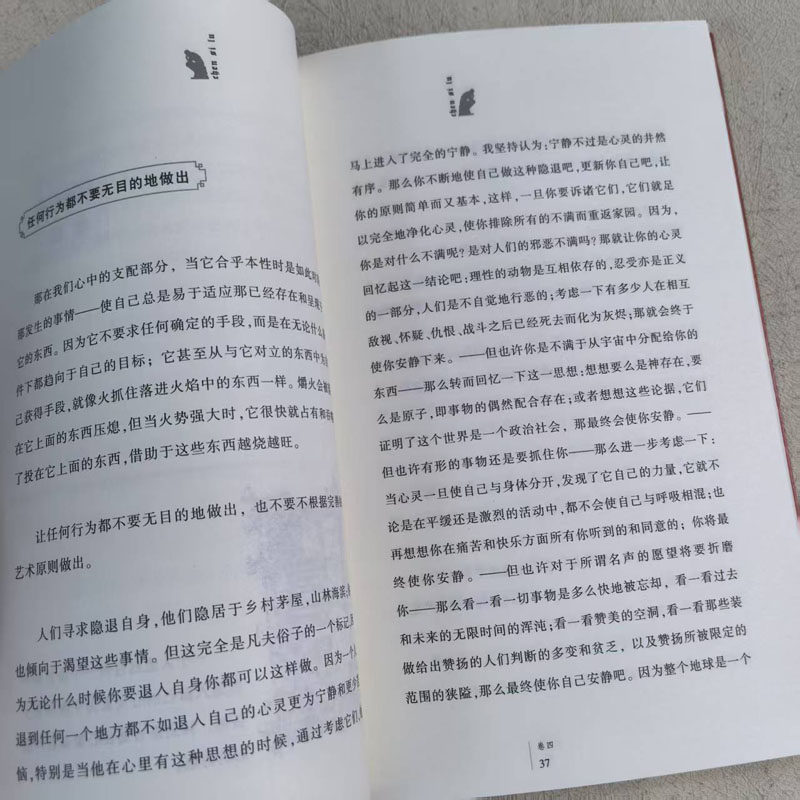 chen si lu
任何行为都不要无目的地做出
那在我们心中的支配部分，当它合乎本性时是如此
那发生的事情——使自己总是易于适应那已经存在和呈
它的东西。因为它不要求任何确定的手段，而是在无论什么
件下都趋向于自己的目标；它甚至从与它对立的东西中为
己获得手段，就像火抓住落进火焰中的东西一样。爝火会被
在它上面的东西压熄，但当火势强大时，它很快就占有和
了投在它上面的东西，借助于这些东西越烧越旺。
让任何行为都不要无目的地做出，也不要不根据完善的
艺术原则做出。
人们寻求隐退自身，他们隐居于乡村茅屋，山林海滨；
也倾向于渴望这些事情。但这完全是凡夫俗子的一个标记，
为无论什么时候你要退入自身你都可以这样做。因为一个人
退到任何一个地方都不如退入自己的心灵更为宁静和更少
恼，特别是当他在心里有这种思想的时候，通过考虑它们，
chen si lu
马上进入了完全的宁静。我坚持认为：宁静不过是心灵的井然
有序。那么你不断地使自己做这种隐退吧，更新你自己吧，让
你的原则简单而又基本，这样，一旦你要诉诸它们，它们就足
以完全地净化心灵，使你排除所有的不满而重返家园。因为，
你是对什么不满呢？是对人们的邪恶不满吗？那就让你的心灵
回忆起这一结论吧：理性的动物是互相依存的，忍受亦是正义
的一部分，人们是不自觉地行恶的；考虑一下有多少人在相互
敌视、怀疑、仇恨、战斗之后已经死去而化为灰烬；那就会终于
使你安静下来。——但也许你是不满于从宇宙中分配给你的
东西——那么转而回忆一下这一思想：想想要么是神存在，要
么是原子，即事物的偶然配合存在；或者想想这些论据，它们
证明了这个世界是一个政治社会，那最终会使你安静。——
但也许有形的事物还是要抓住你——那么进一步考虑一下：
当心灵一旦使自己与身体分开，发现了它自己的力量，它就不
论是在平缓还是激烈的活动中，都不会使自己与呼吸相混；也
再想想你在痛苦和快乐方面所有你听到的和同意的；你将最
终使你安静。——但也许对于所谓名声的愿望将要折磨
你——那么看一看一切事物是多么快地被忘却，看一看过去
和未来的无限时间的浑沌；看一看赞美的空洞，看一看那些装
做给出赞扬的人们判断的多变和贫乏，以及赞扬所被限定的
范围的狭隘，那么最终使你自己安静吧。因为整个地球是一个
卷四
37